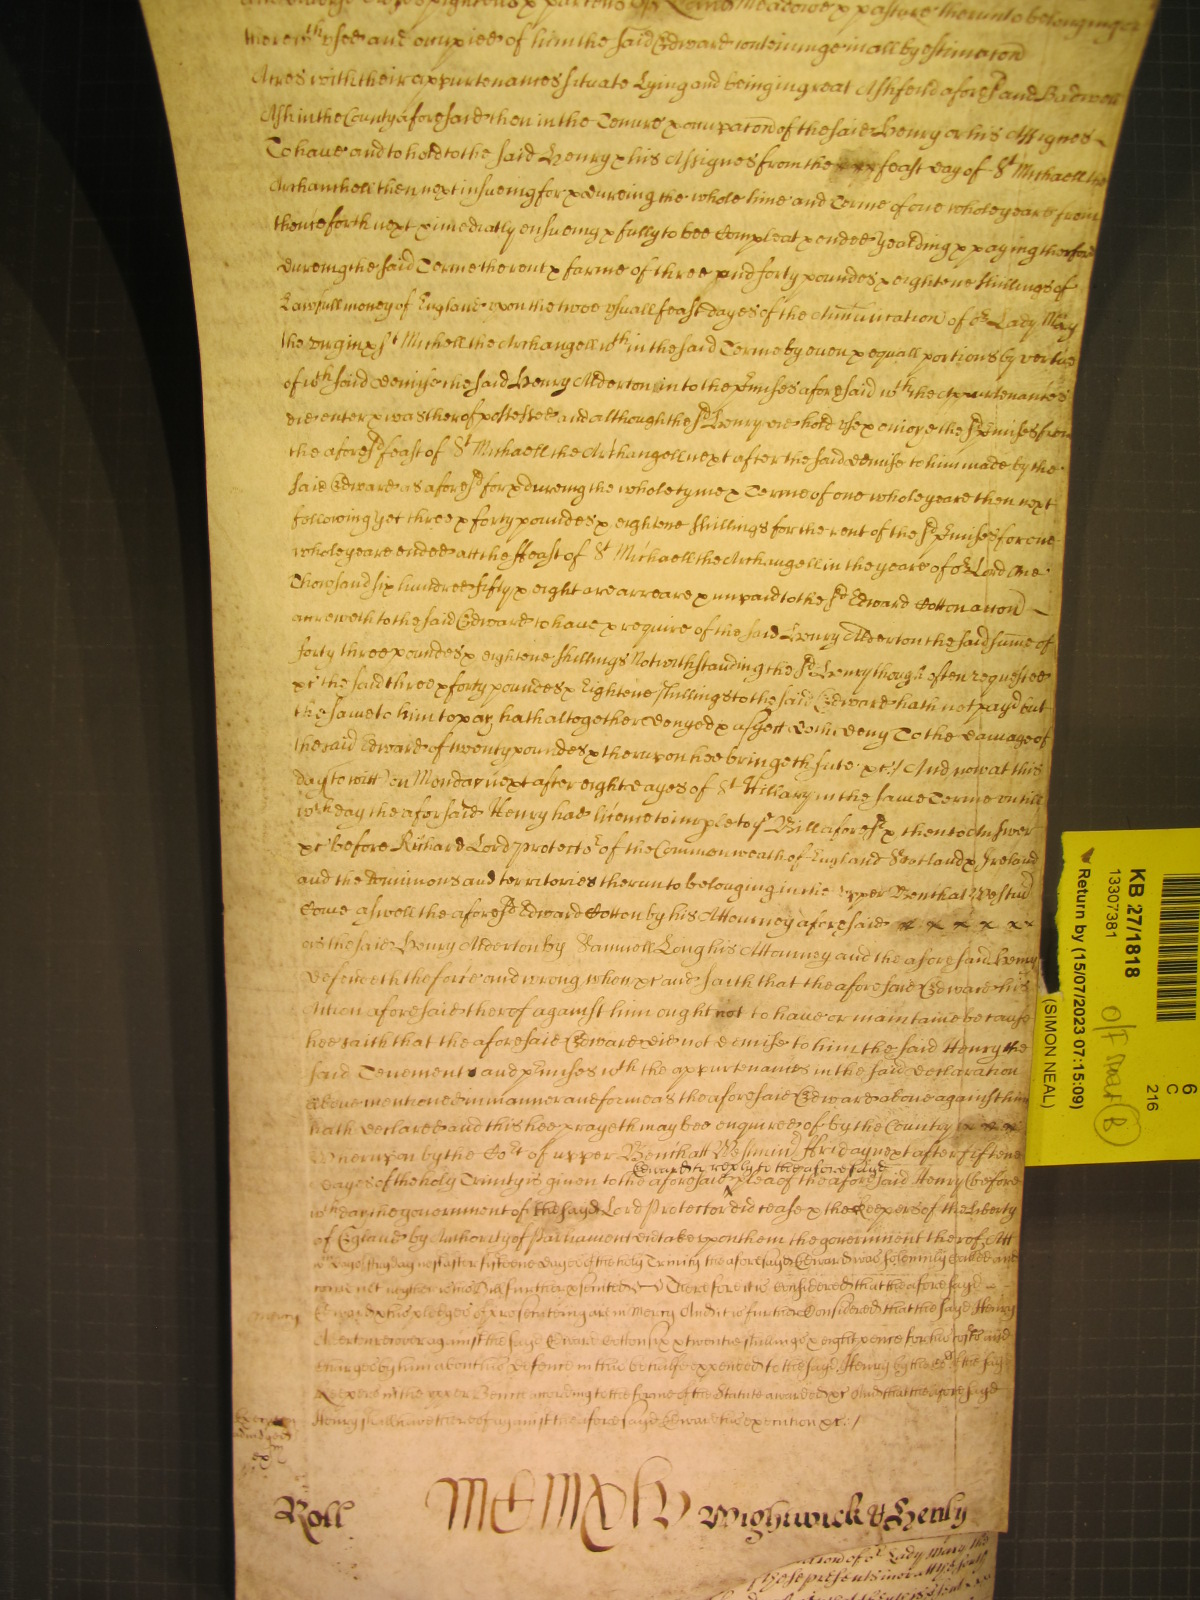 and diverse Closes pightens & partens of Land Meadowe & pasture therunto belonginge or
therewth used and occupied of him the said Edward conteininge in all by estimacon
Acres with their appurtenances situate Lying and being in great Ashfeild aforesd and Badwell
Ash in the County aforesaid then in the Tenure & occupacon of the said Henry or his Assignes
To have and to hold to the said Henry & his Assignes from the feast day of St Michaell the
Archanchell then next insueing for & dureing the whole time and Terme of one whole yeare from
thenceforth next & imediatly ensueing & fully to bee Compleat & ended yealding & paying therfore
dureing the said Terme the rent & farme of three and forty poundes & eightene shillings of
Lawfull money of England upon the twoe usuall feast dayes of the Annunciation of or Lady Mary
the virgin & St Michell the Archangell wthin the said Terme by even & equall portions by vertue
of wch said demise the said Henry Alderton into the pmises aforesaid wth the Appurtenances
did enter & was therof possessed and although the sd Henry did hold use & enioye the sd pmises from
the aforesd feast of St Michaell the Archangell next after the said demise to him made by the
said Edward as aforesd for & dureing the whole tyme & Terme of one whole yeare then next
following yet three & forty poundes & eightene shillings for the rent of the sd pmises for one
whole yeare ended att the ffeast of St Michaell the Archangell in the yeare of or Lord one
Thowsand six hundred fifty & eight are arreare & unpaid to the sd Edward Cotton accon
accreweth to the said Edward to have & require of the said Henry Alderton the said sume of
forty three poundes & eightene shillings Notwithstanding the sd Henry though often requested
&c the said three & forty poundes & Eightene shillings to the said Edward hath not payd but
the same to him to pay hath altogether denyed & as yett doth deny To the damage of
the said Edward of twenty poundes & therupon hee bringeth sute &c:/ And now at this
day to witt on Monday next after eight dayes of St Hillary in the same Terme untill
wch day the aforsaid Henry had licence to imple to ye Bill aforesd & then to Answer
&c before Richard Lord protector of the Commonweath of England Scotland & Ireland
and the Dominions and territories therunto belonging in the upper Bench att Westmr
Come aswell the aforesd Edward Cotton by his Attourney aforesaid x x x x x x
as the said Henry Alderton by Samuell Long his Attourney and the aforesaid Henry
defendeth the force and wrong when &c and saith that the aforesaid Edward his
Action aforesaid therof against him ought not to have or maintaine because
hee saith that the aforesaid Edward did not demise to him the said Henry the
said Tenement and pmises wth the appurtenances in the said declaration
above mentioned in manner and forme as the aforesaid Edward above against him
hath declared and this hee prayeth may bee enquired of by the Country x x x
Wherupon by the Cort of upper Bench att Westminr ffriday next after fiftene
Edward to reply to the aforesayd
dayes of the holy Trinity is given to the aforesaid plea of the aforesaid Henry (before
wch day the government of the sayd Lord Protector did cease & the Keepers of the Liberty
of England by Authority of Parliament did take upon them the government therof Att
wch daye ffryday next after fiftene dayes of the holy Trinity the aforesayd Edward was solemnly called and
came not neyther is his Bill further psecuted Therefore it is Considered that the aforesayd
mercy Edward & his pledges of prosecuting are in mercy And it is further Considered that the sayd Henry
doe recover against the sayd Edward Cotton six & twentie shillings & eight pence for his costs and
charges by him about his defence in this behalfe expended to the sayd Henry by the Cort of the sayd
Keepers in the upper Bench according to the forme of the Statute awarded &c And that the aforesayd
Henry shall have thereof against the aforesayd Edward his execution &c:/
Roll
Wightwick & Henly
KB 27/1818
13307381
Return by (15/07/2023 07:15:09)
(SIMON NEAL)
6
C
216